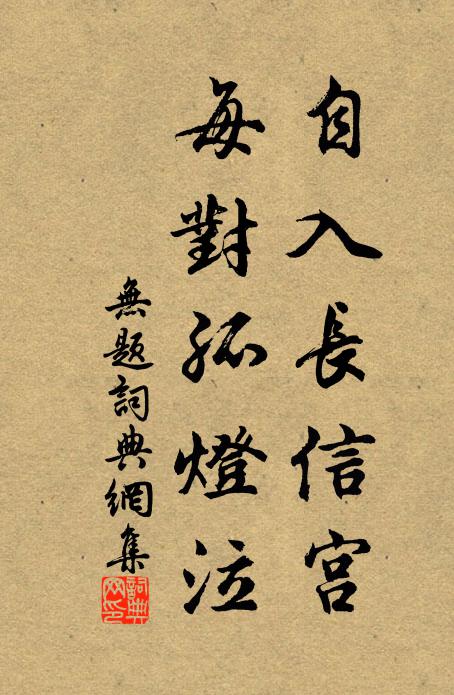 自入長信宮
每對孤燈泣
無題詞典網集
詞典
网印